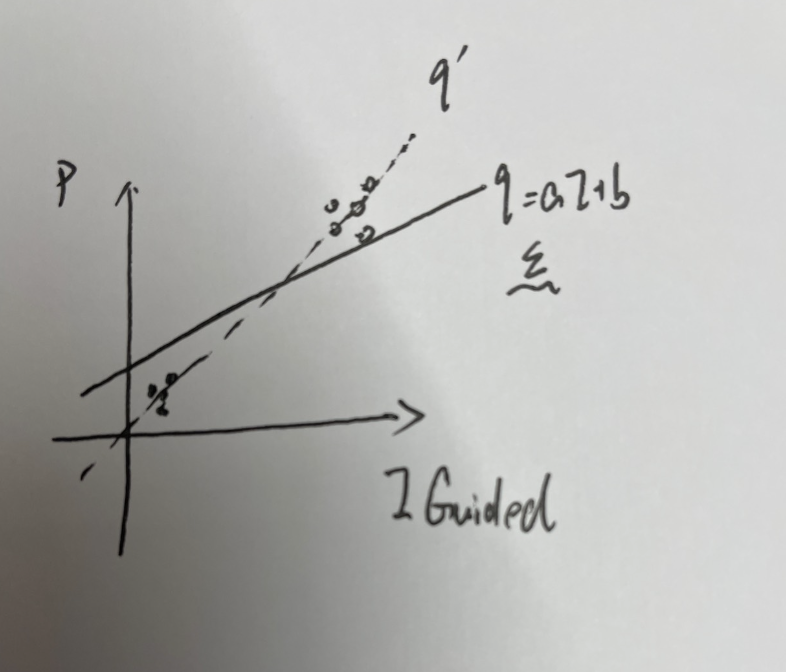 q'
P
q=aI+b
ε
I Guided